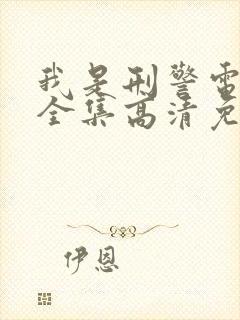 我是刑警电
全集高清免
伊恩